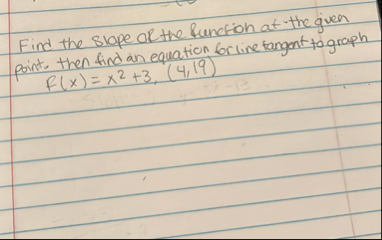 Find the slope of the function at the given
point. then find an equation for line tangent to graph
f(x) = x² + 3, (4,19)